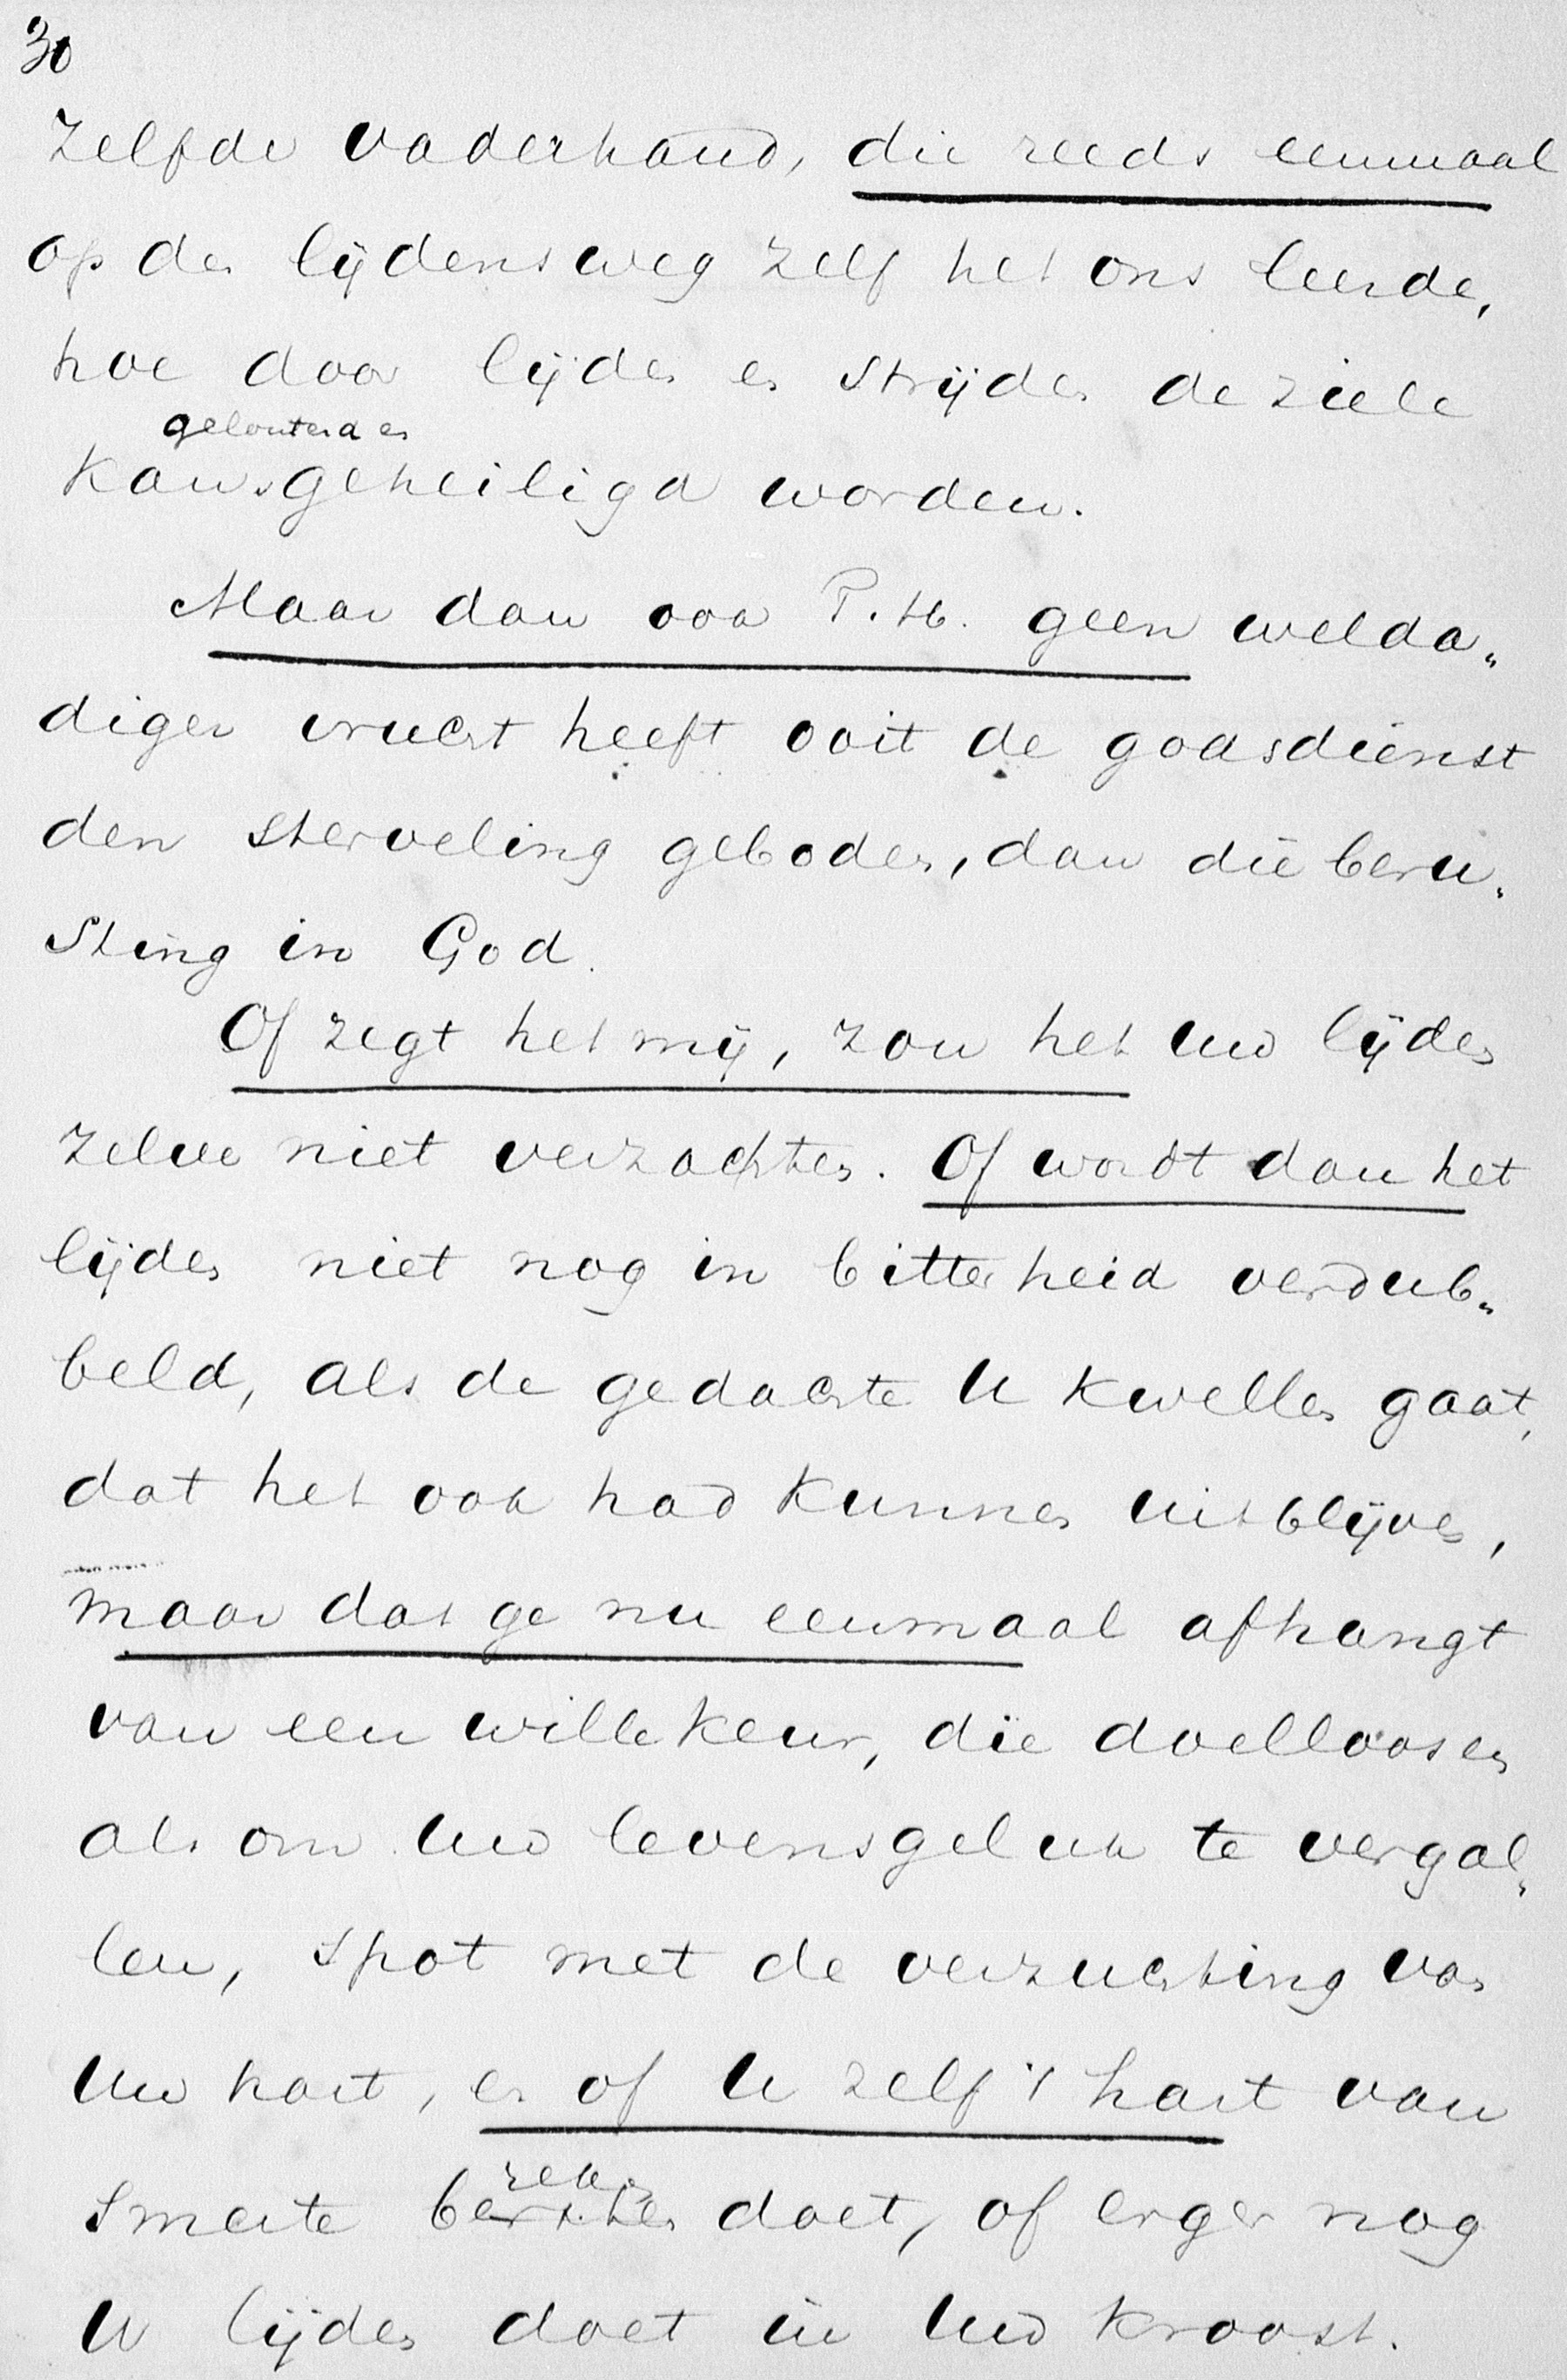 30
zelfde vaderhand, die reeds eenmaal
op den lijdensweg zelf het ons leerde,
hoe door lijden en strijden de ziele
gelouterd en
kan geheiligd worden.
Maar dan ook P. H. geen welda„
diger vrucht heeft ooit de godsdienst
den sterveling geboden, dan die beru„
sting in God.
Of zegt het mij, zou het uw lijden
zelve niet verzachten. Of wordt dan het
lijden niet nog in bitterheid verdub„
beld, als de gedachte U kwellen gaat,
dat het ook had kunnen uitblijven,
maar dat ge nu eenmaal afhangt
van een willekeur, die doelloos en
als om uw levensgeluk te vergal„
len, spot met de verzuchting van
uw hart, en of U zelf 't hart van
smerte doet, of erger nog
U lijden doet in uw kroost.